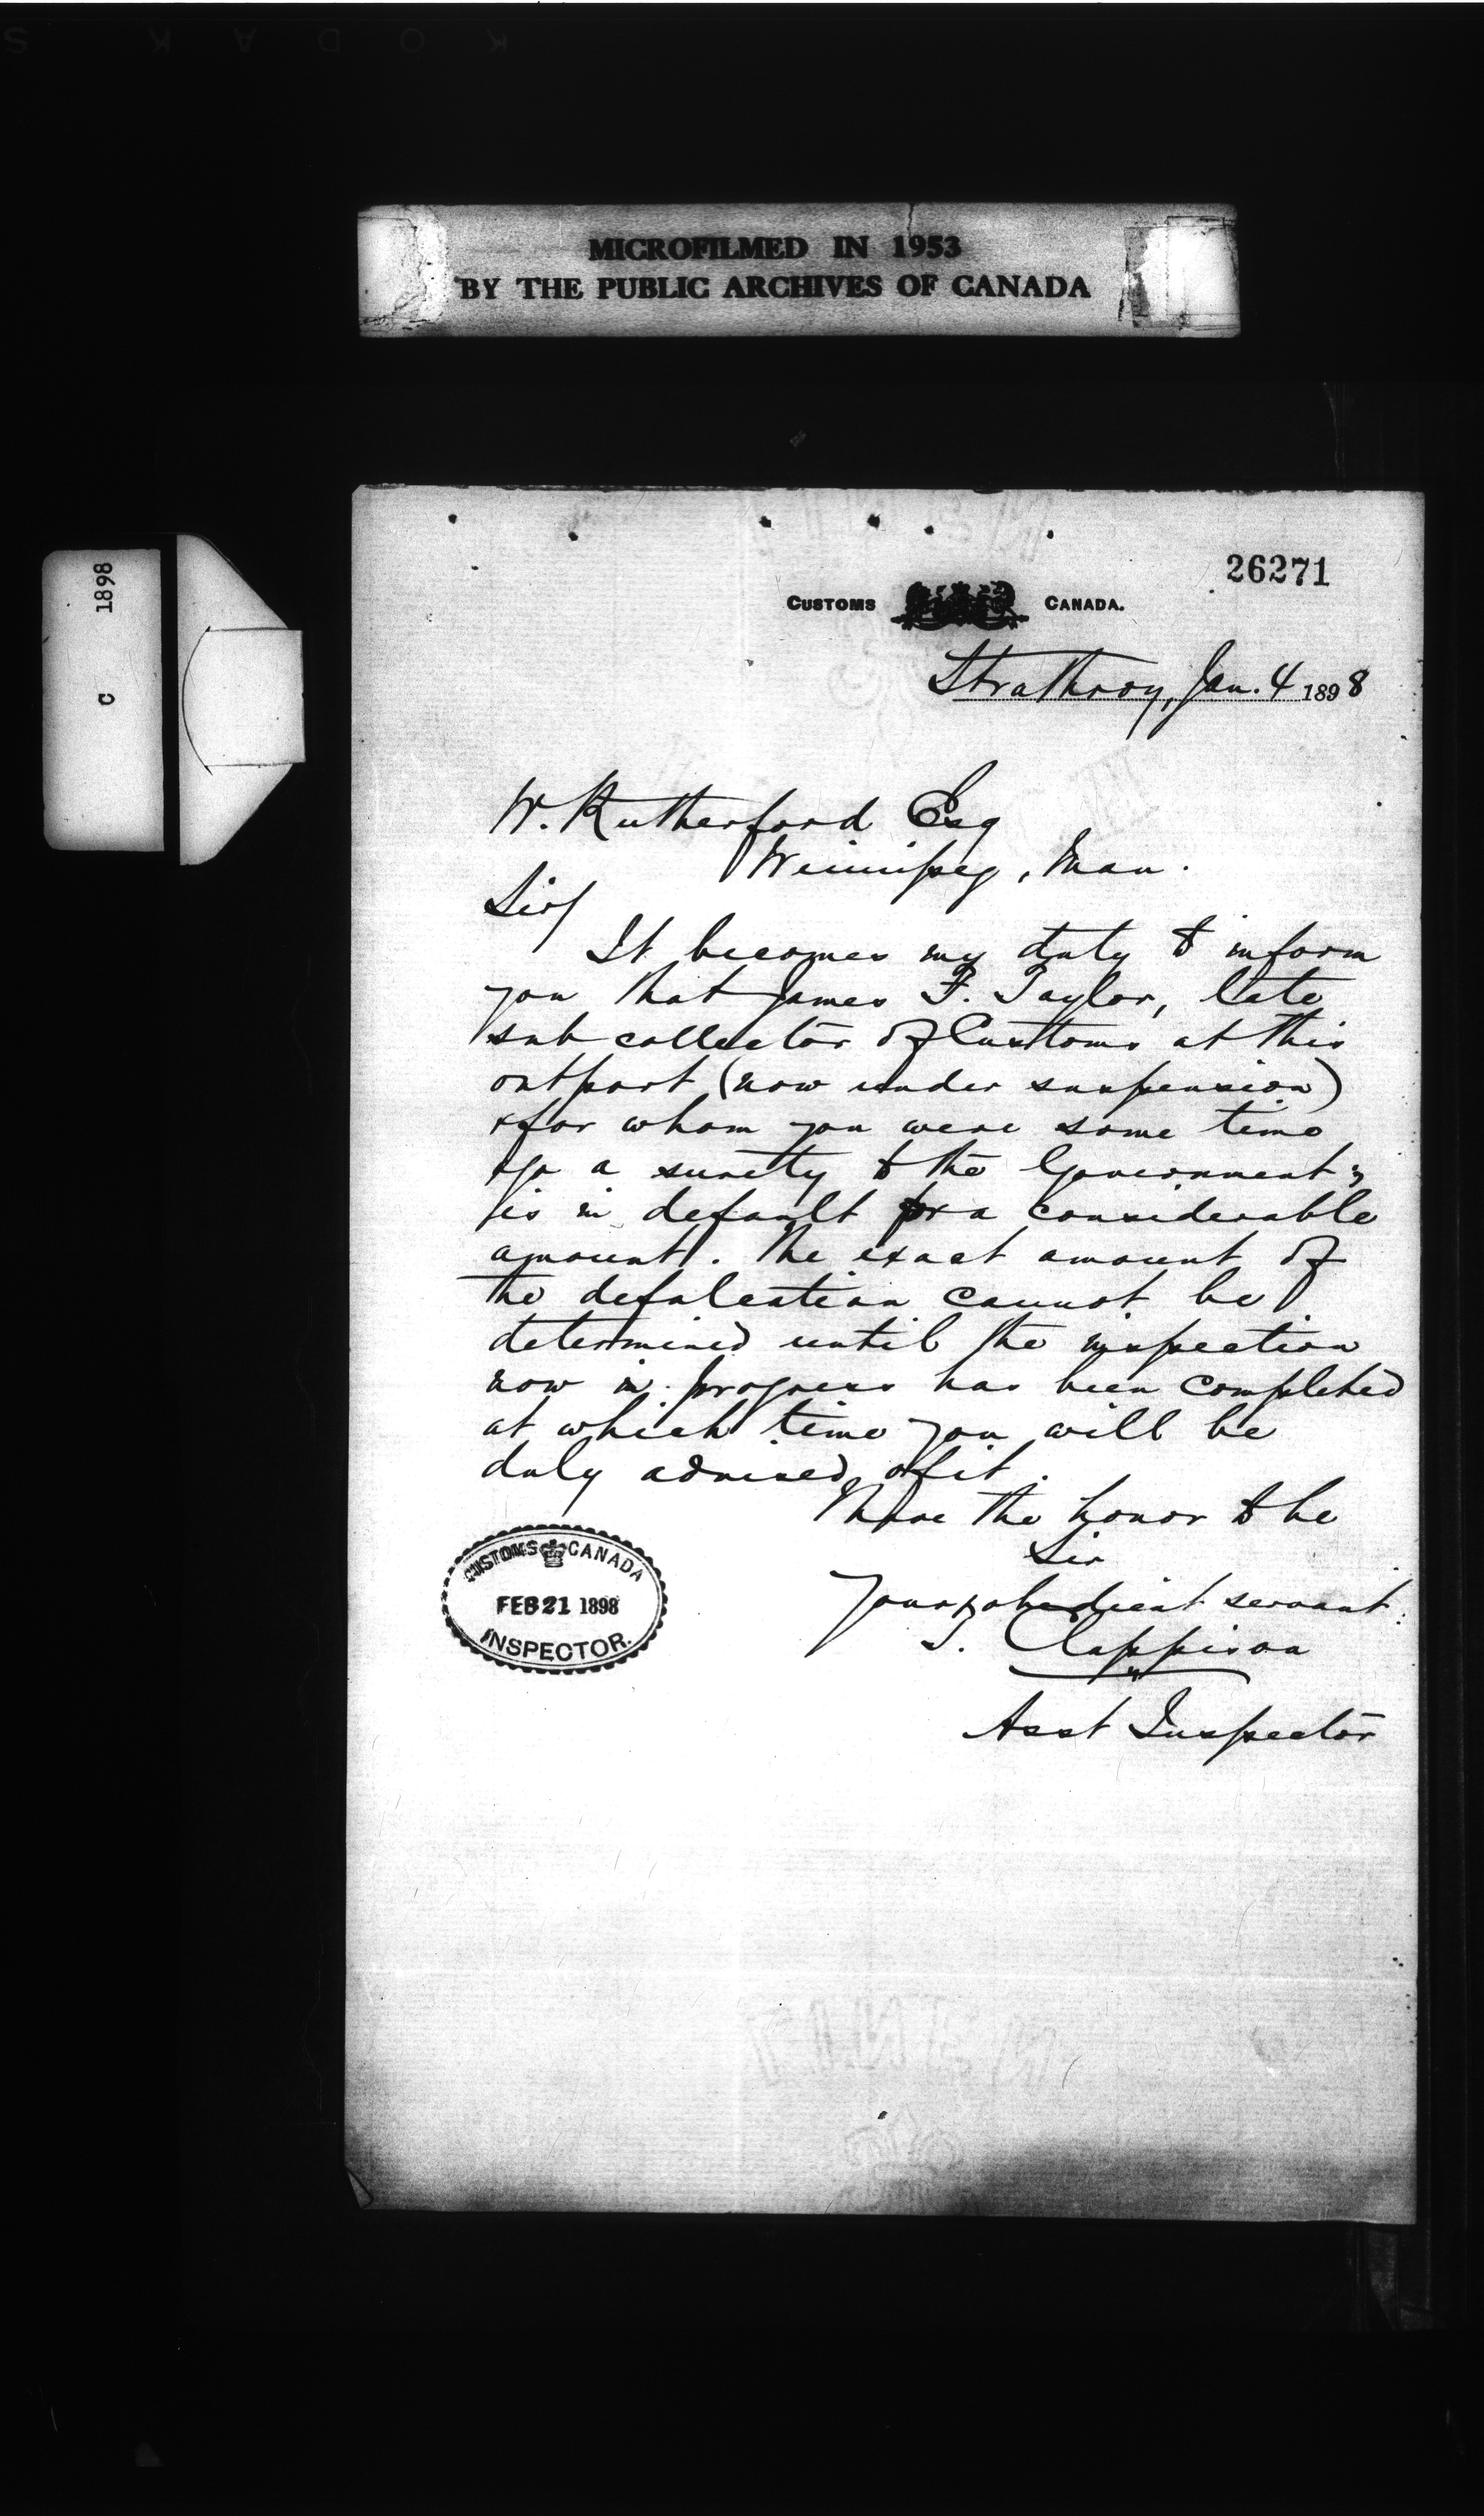 KODAK S
MICROFILMED IN 1953
BY THE PUBLIC ARCHIVES OF CANADA
C 1898
26271
CUSTOMS CANADA.
Strathroy, Jan. 4 1898
W. Rutherford Esq
Winnipeg, Man.
Sir/
It becomes my duty to inform
you that James F. Taylor, late
sub collector of Customs at this
outport (now under suspension)
& for whom you were some time
ago a surety to the Government,
is in default for a considerable
amount. The exact amount of
the defalcation cannot be
determined until the inspection
now in progress has been completed
at which time you will be
duly advised of it.
I have the honor to be
Sir
Your obedient servant
T. Clappison
Asst Inspector
CUSTOMS CANADA
FEB 21 1898
INSPECTOR.